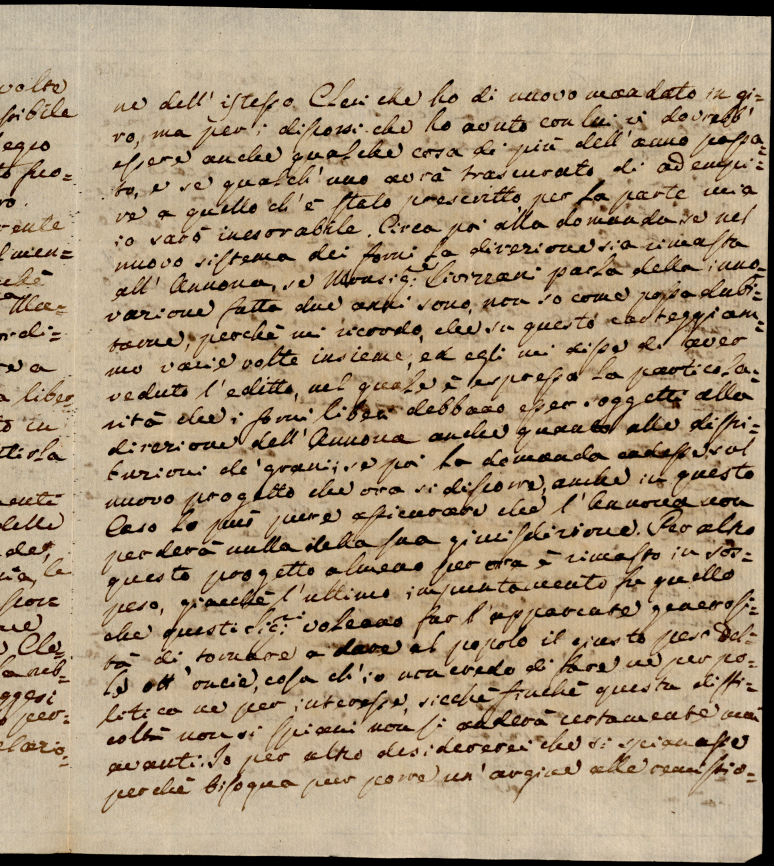 volte
sibile
legio
to fuo=
ro.
rente
lmen=
chè
Ma=
ordi=
re a
a liber
to in
tirla
menti
delle
de,
le
spon
ne
Cle=
la sub=
ggesi
pero=
elazio=
ne dell' istesso Cleri che ho di nuovo mandato in gi=
ro, ma per i discorsi che ho avuto con lui vi dovrebb'
essere anche qualche cosa di più dell' anno passa=
to, e se qualch' uno avrà trascurato di adempi=
re a quello ch' è stato prescritto per la parte mia
io sarò inesorabile. Circa poi alla domanda se nel
nuovo sistema dei forni la direzione sia rimasta
all' Annona, se Monsig.r Livizzani parla della inno=
vazione fatta due anni sono, non so come possa dubi=
tarne, perchè mi ricordo, che su questo carteggiam=
mo varie volte insieme, ed egli mi disse di aver
veduto l' editto, nel quale è espressa la particola=
rità che i forni liberi debbano esser soggetti alla
direzione dell' Annona anche quanto alle distri=
buzioni de' grani; se poi la domanda cadesse sul
nuovo progetto che ora si discorre, anche in questo
Caso lo può pure assicurare che l' Annona non
perderà nulla della sua giurisdizione. Per altro
questo progetto almeno per ora è rimasto in sos=
peso, giacchè l' ultimo impuntamento fu quello
che questi Sig.ri voleano far l' apparente generosi=
tà di tornare a dare al popolo il giusto peso del=
le ott' oncie, cosa ch' io non credo di fare nè per po=
litica ne per interesse, sicchè finchè questa diffi=
coltà non si spiani non si anderà certamente mai
avanti. Io per altro desidererei che si spianasse
perchè bisogna pur porre un' argine alle